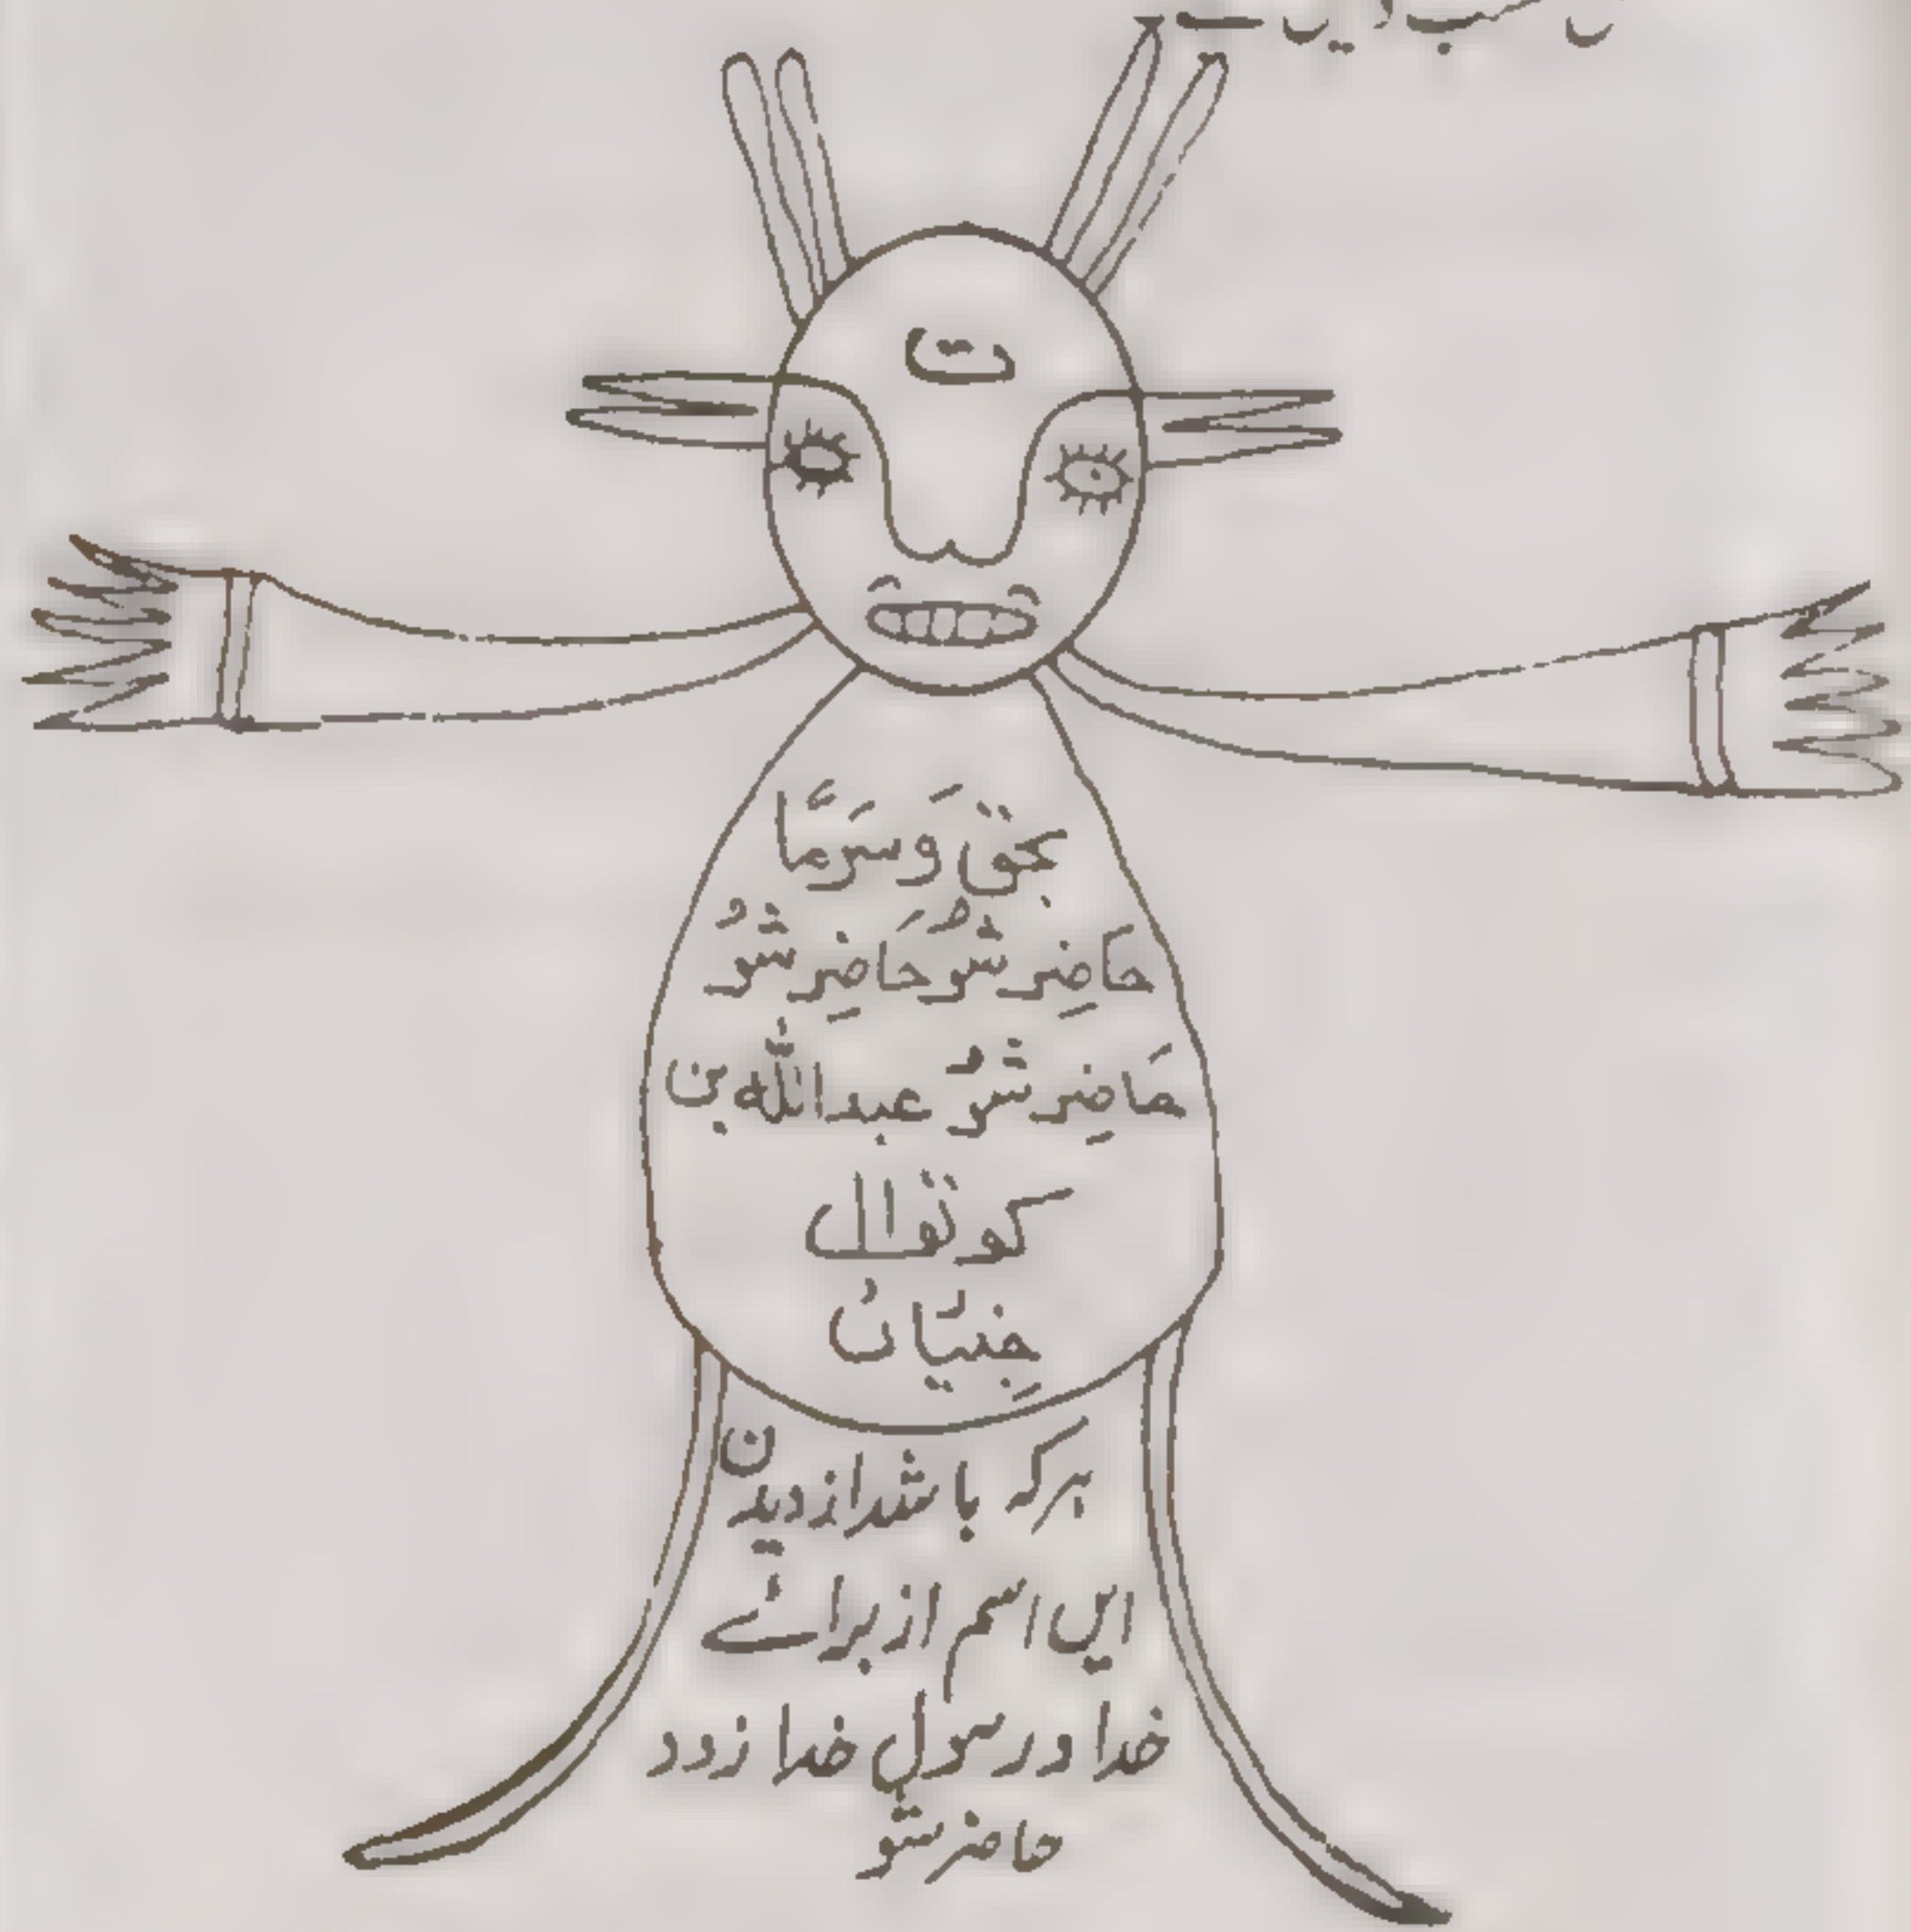 ت
بحَقّ وَسَرَمَّا
حَاضِر شُو حَاضِر شُو
حَاضِر شُو عبداللّٰه بن
کوتوال
جِنِّیَان
ہرکہ باشد از دیدن
ایں اسم از برائے
خدا و رسولِ خدا زود
حاضر شو